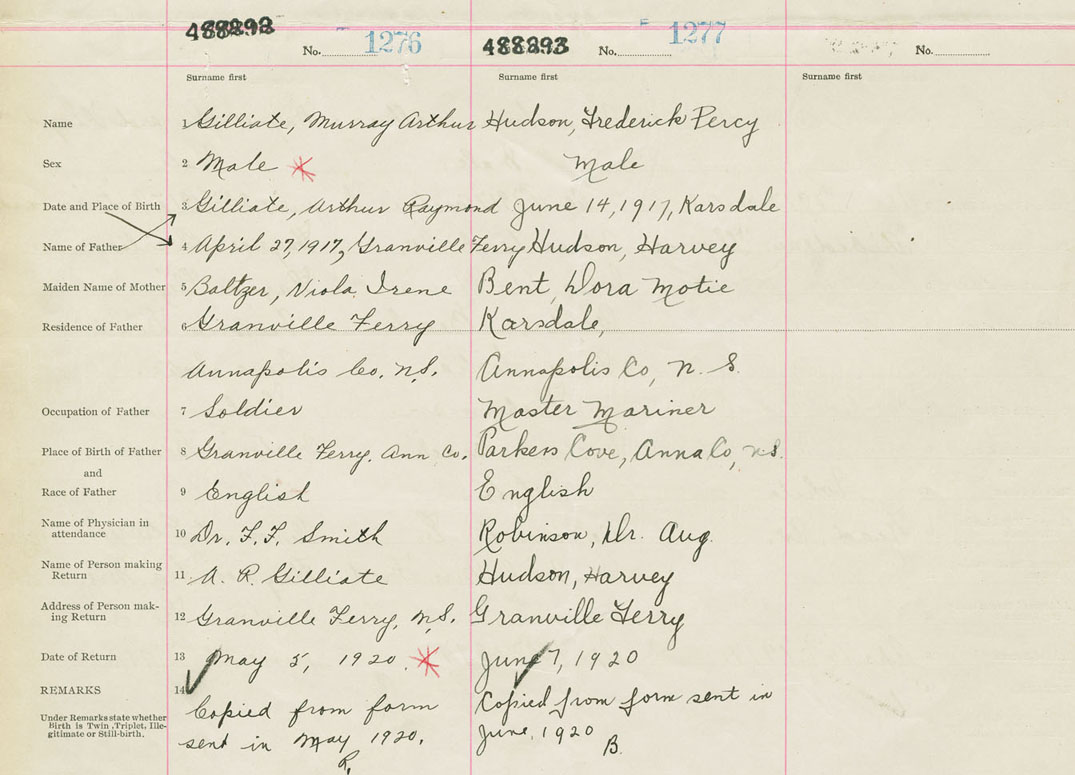 488293 No. 1276 488293 No. 1277 No.
Surname first Surname first Surname first
Name 1 Gilliate, Murray Arthur Hudson, Frederick Percy
Sex 2 Male Male
Date and Place of Birth 3 Gilliate, Arthur Raymond June 14, 1917, Karsdale
Name of Father 4 April 27, 1917, Granville Ferry Hudson, Harvey
Maiden Name of Mother 5 Baltzer, Viola Irene Bent, Dora Motie
Residence of Father 6 Granville Ferry Karsdale,
Annapolis Co. N.S. Annapolis Co, N. S.
Occupation of Father 7 Soldier Master Mariner
Place of Birth of Father 8 Granville Ferry, Ann Co. Parkers Cove, Anna Co, N.S.
and
Race of Father 9 English English
Name of Physician in
attendance 10 Dr. F. F. Smith Robinson, Dr. Aug.
Name of Person making
Return 11 A. R. Gilliate Hudson, Harvey
Address of Person mak-
ing Return 12 Granville Ferry, N.S. Granville Ferry
Date of Return 13 May 5, 1920. June 7, 1920
REMARKS 14 Copied from form Copied from form sent in
Under Remarks state whether
Birth is Twin, Triplet, Ille-
gitimate or Still-birth.
sent in May 1920. June, 1920
R. B.